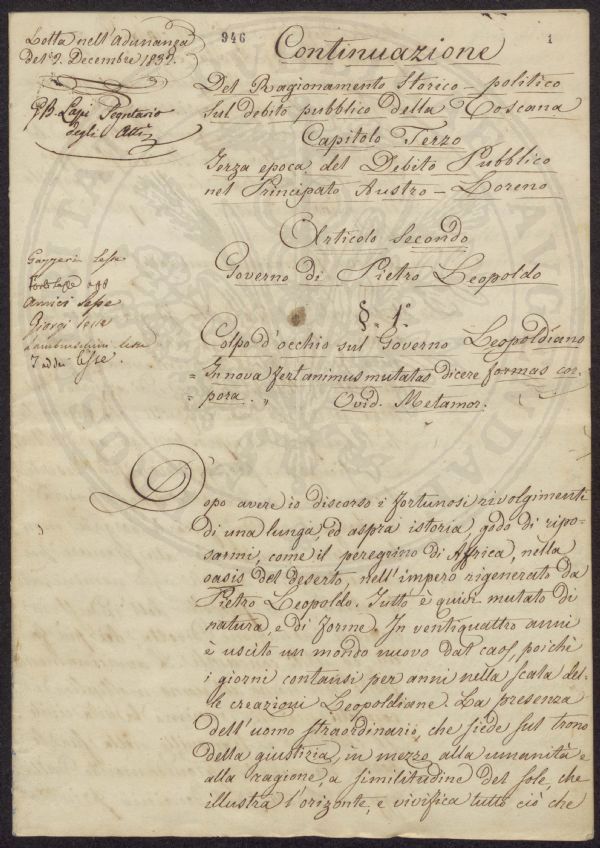 Letta nell'Adunanza
Del dì 9. Decembre 1837.
G. B. Lapi Segretario
degli Atti
946
1
Continuazione
Del Ragionamento Storico-politico
sul debito pubblico della Toscana
Capitolo Terzo
Terza epoca del Debito Pubblico
nel Principato Austro-Loreno
Articolo Secondo
Governo di Pietro Leopoldo
§. 1º
Colpo d'occhio sul Governo Leopoldiano
= In nova fert animus mutatas dicere formas cor=
= pora. „ Ovid. Metamor.
Gazzeri lesse
lesse
Amici lesse
Giorgi lesse
Lambruschini lesse
Taddei lesse.
Dopo avere io discorso i fortunosi rivolgimenti
di una lunga, ed aspra istoria, godo di ripo=
sarmi, come il peregrino di Affrica, nella
oasis del deserto, nell'impero rigenerato da
Pietro Leopoldo. Tutto è quivi mutato di
natura, e di forme. In ventiquattro anni
è uscito un mondo nuovo dal caos, poichè
i giorni contansi per anni nella scala del=
le creazioni Leopoldiane. La presenza
dell'uomo straordinario, che siede sul trono
della giustizia, in mezzo alla umanità e
alla ragione, a similitudine del sole, che
illustra l'orizonte, e vivifica tutto ciò che